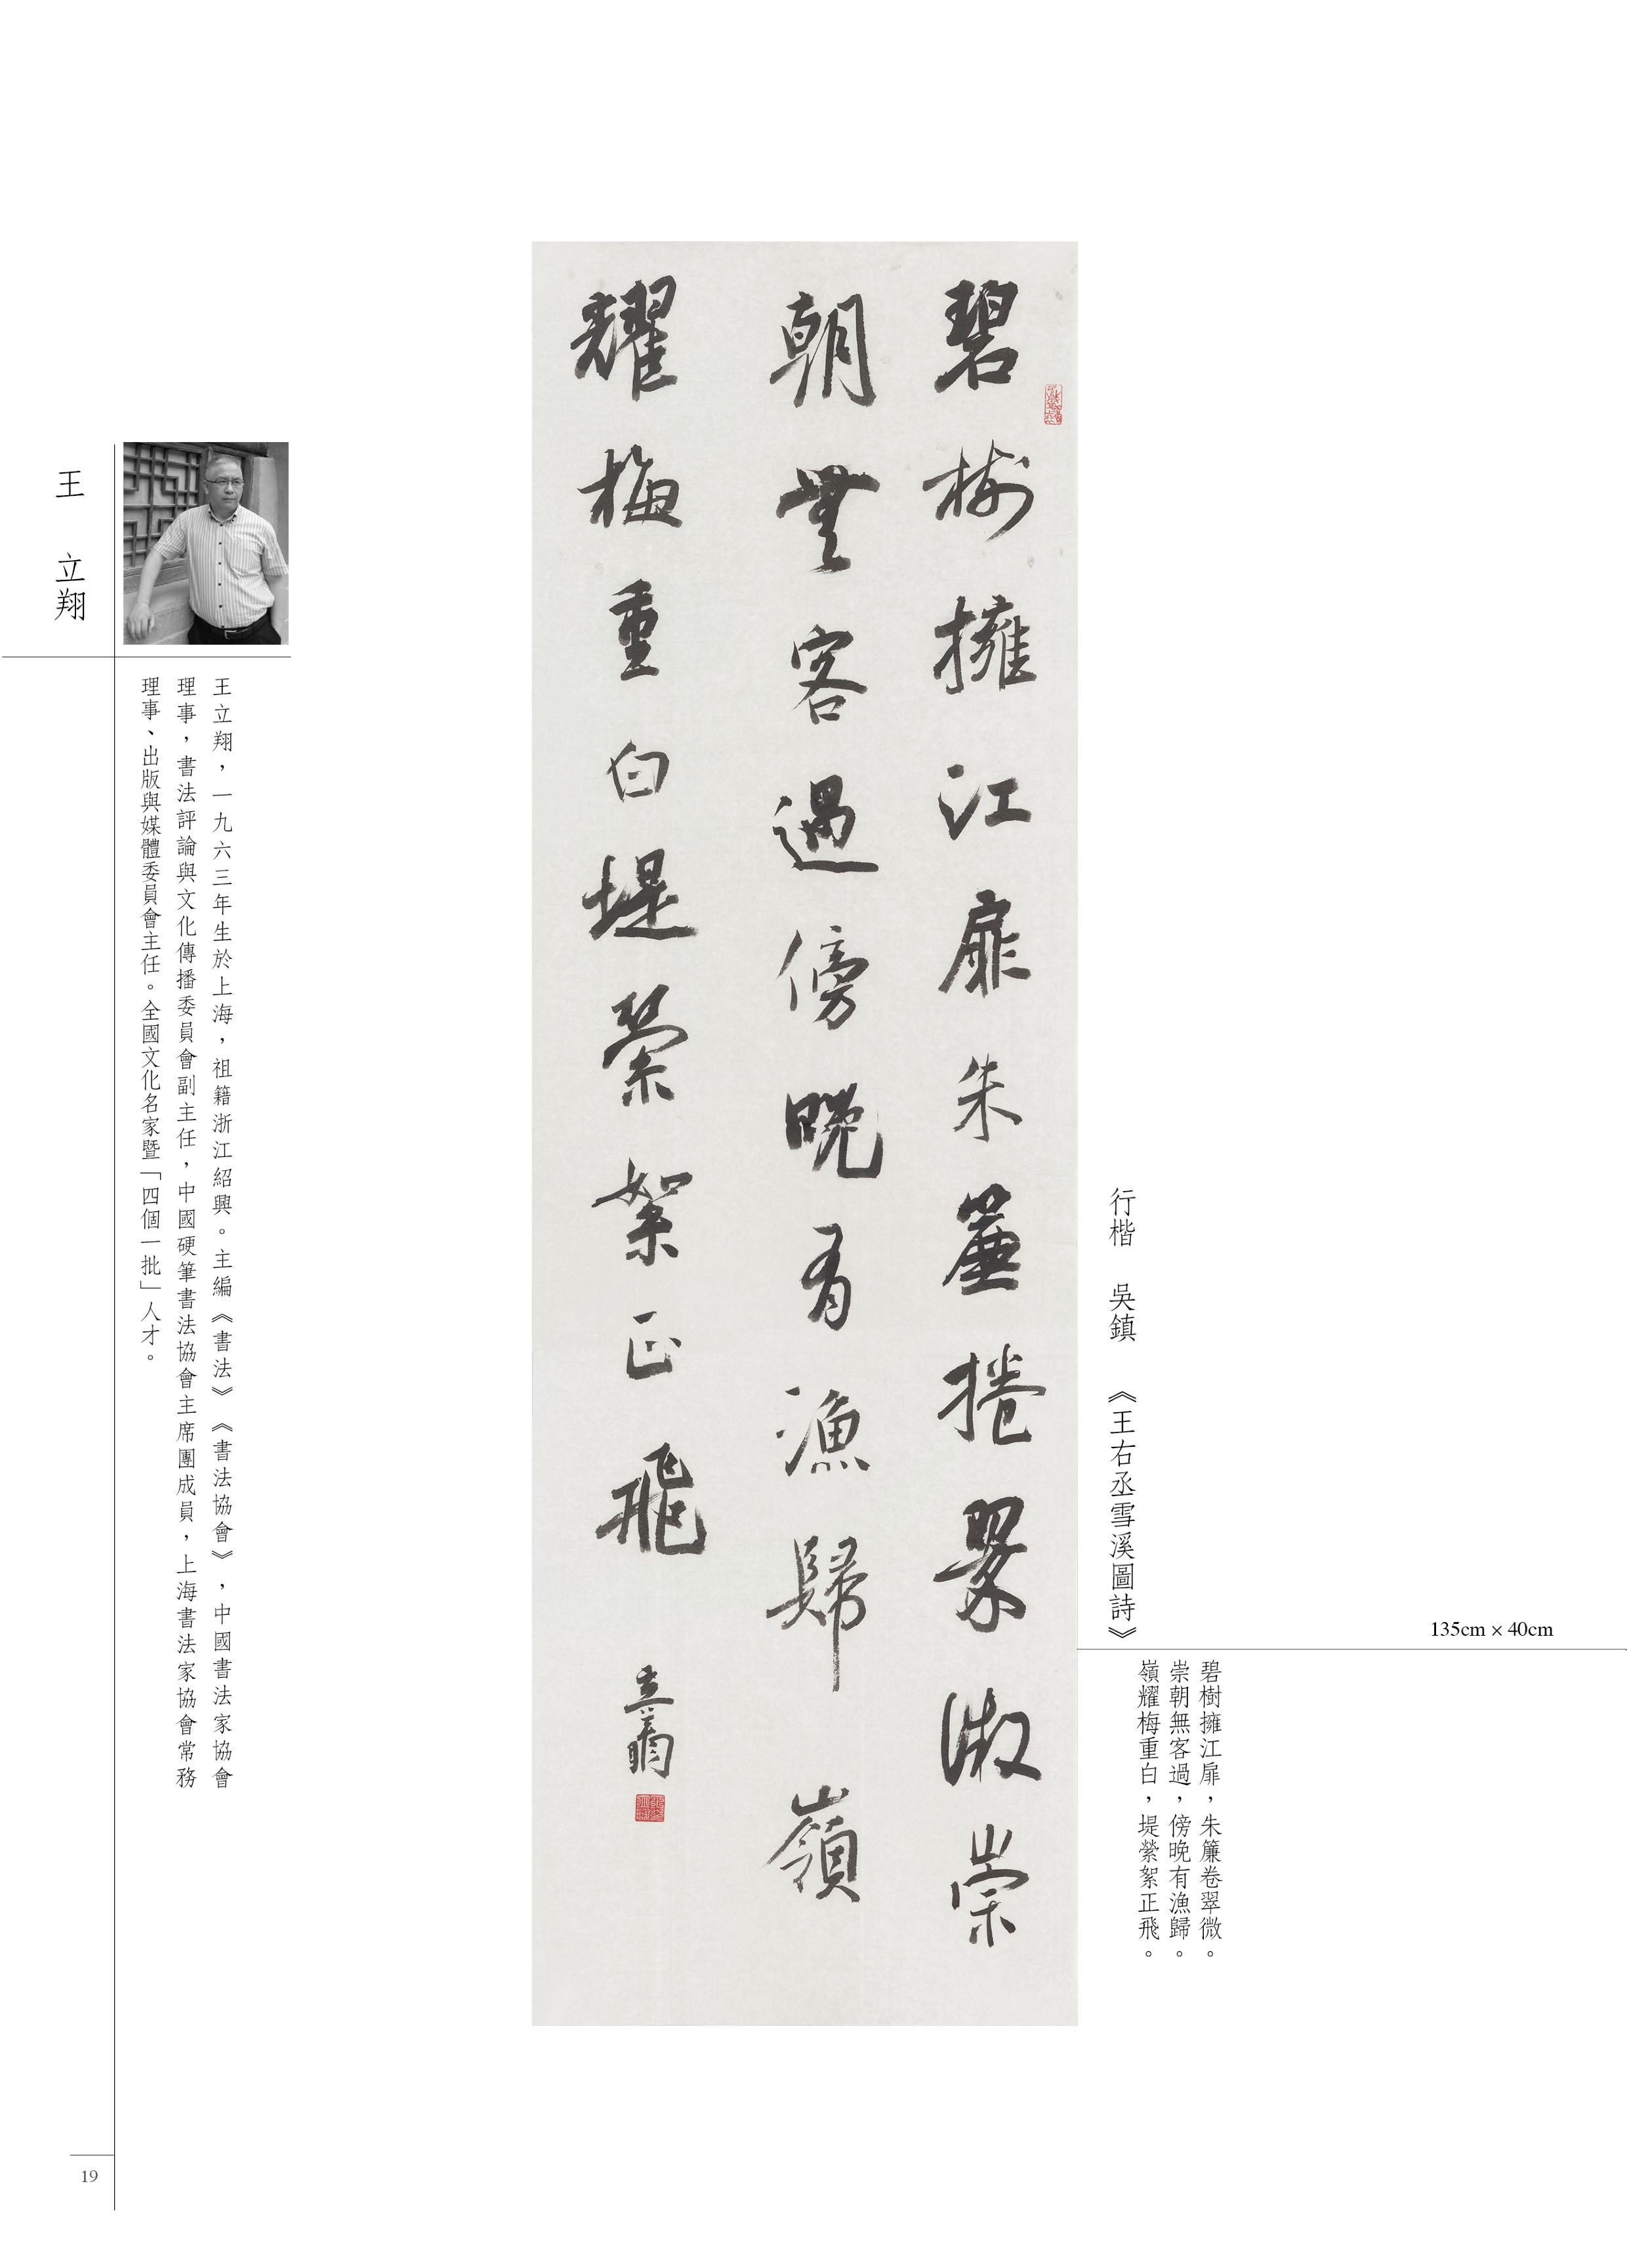 135cm × 40cm
行楷 吳鎮 《王右丞雪溪圖詩》
碧樹擁江扉，朱簾卷翠微。
崇朝無客過，傍晚有漁歸。
嶺耀梅重白，堤縈絮正飛。
碧樹擁江扉朱簾捲翠微崇
朝無客過傍晚有漁歸嶺
耀梅重白堤縈絮正飛
立翔
王 立翔
王立翔，一九六三年生於上海，祖籍浙江紹興。主編《書法》《書法協會》，中國書法家協會
理事，書法評論與文化傳播委員會副主任，中國硬筆書法協會主席團成員，上海書法家協會常務
理事、出版與媒體委員會主任。全國文化名家暨「四個一批」人才。
19